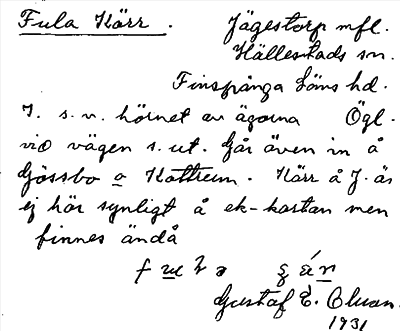 Fula Kärr. Jägestorp mfl.
Hällestads sn.
Finspånga läns hd.
I. s. v. hörnet av ägorna Ögl.
vid vägen s. ut. Går även in å
Gössbo o Kattrum. Kärr å J. äs
ej här synligt å ek-kartan men
finnes ändå
Gustaf E. Olsson.
1931